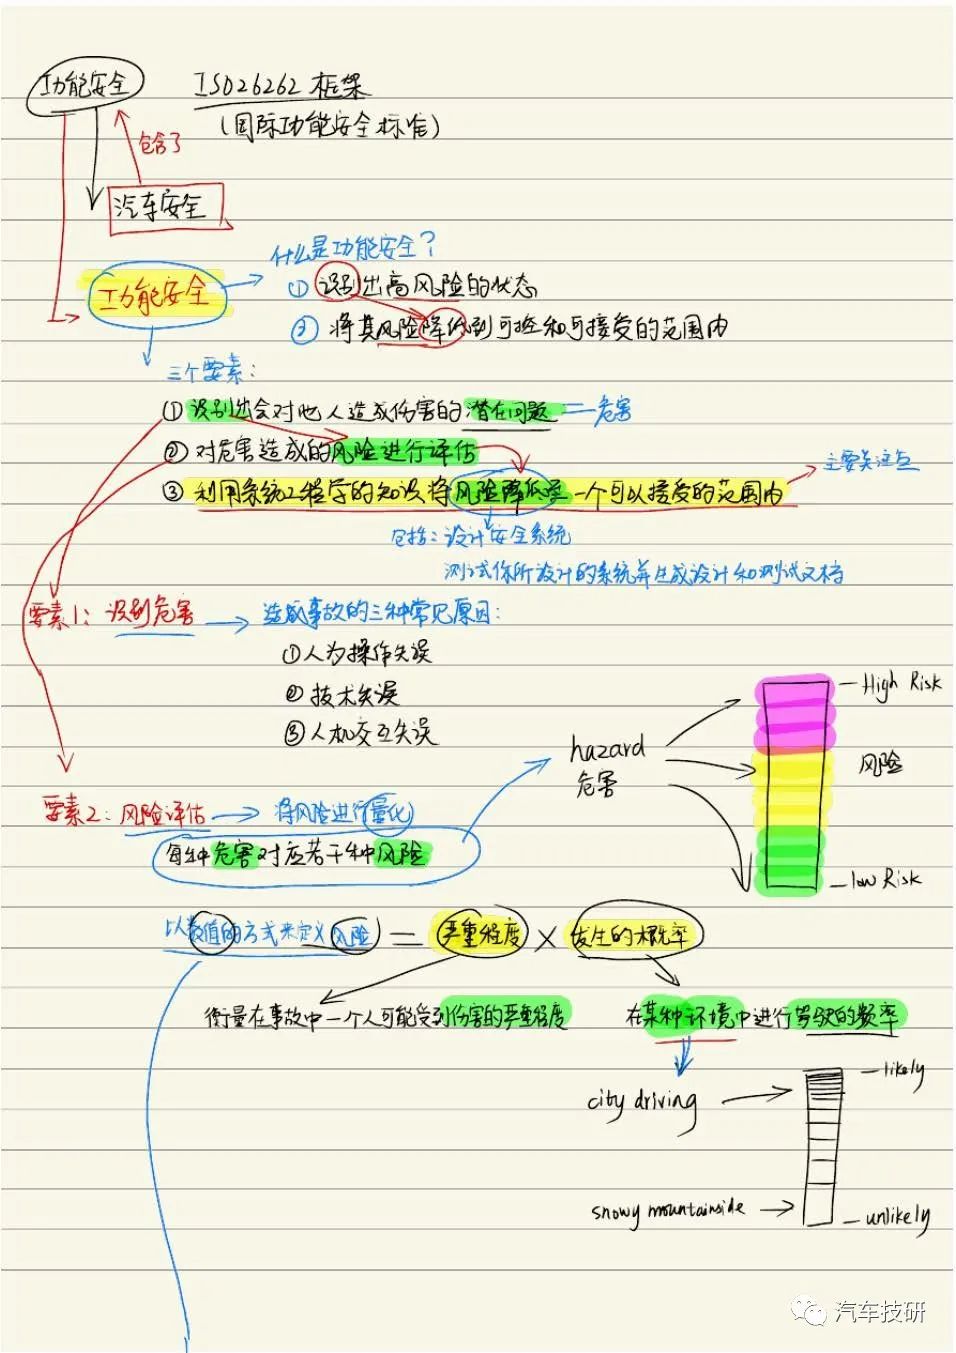 功能安全 ISO26262 框架
(国际功能安全标准)
包含了
汽车安全
什么是功能安全?
功能安全
① 识别出高风险的状态
② 将其风险降低到可控和可接受的范围内
三个要素:
① 识别出会对他人造成伤害的潜在问题 = 危害
② 对危害造成的风险进行评估
主要关注点
③ 利用系统工程学的知识将风险降低至一个可以接受的范围内
包括: 设计安全系统
测试你所设计的系统并生成设计和测试文档
要素1: 识别危害 → 造成事故的三种常见原因:
① 人为操作失误
② 技术失误
③ 人机交互失误
High Risk
hazard
危害
风险
要素2: 风险评估 → 将风险进行量化
每种危害对应若干种风险
low Risk
以数值的方式来定义风险 = 严重程度 × 发生的概率
衡量在事故中一个人可能受到伤害的严重程度
在某种环境中进行驾驶的频率
likely
city driving
snowy mountainside
unlikely
汽车技研